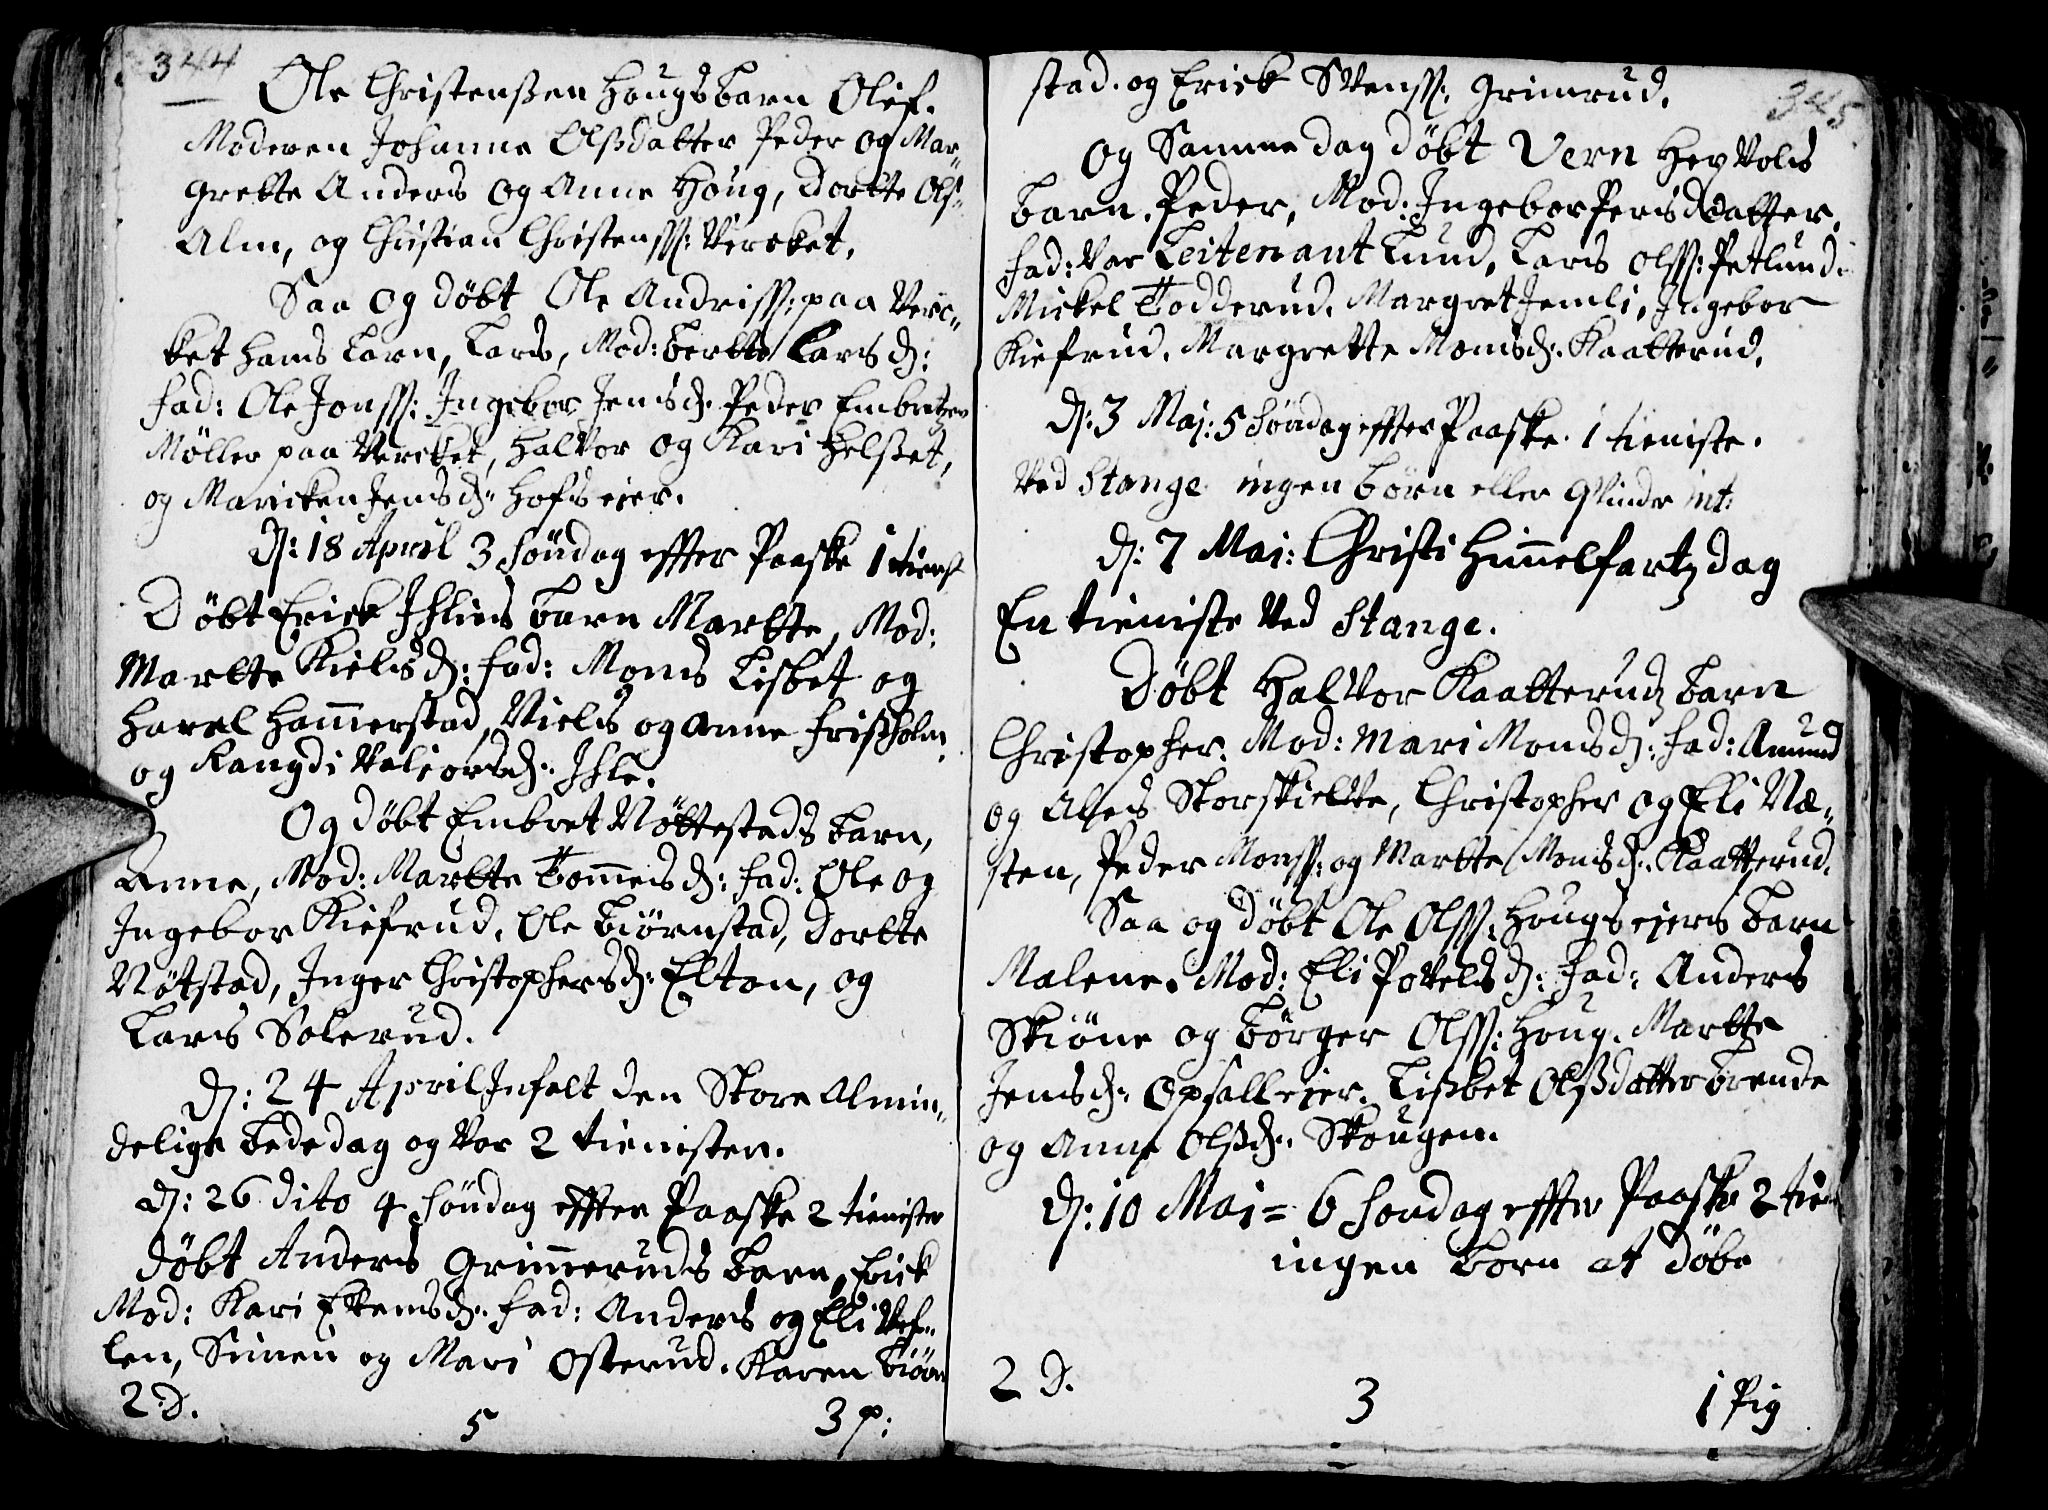 344
Ole Christenßen Hougs barn Olef.
Moderen Johanne Olßdatter Peder og Mar-
grette Anders og Anne Houg, Dortte Ols:
Alm, og Christian Christenss: Vercket.
Saa og døbt Ole Andriss: paa Verc-
ket hans barn, Lars, Mod: bertte Lars d:
fad: Ole Jonss: Ingebor Jens d: Peder Embretzen
Møller paa Vercket, Halvor og Kari Helßet,
og Maricken Jens d: Hofs eier.
D: 18 April 3 Søndag effter Paaske 1 tienst
Døbt Erick Ihles barn Martte, Mod:
Martte Kiels d: fad: Mons Lisbet og
Harel Hammerstad, Niels og Anne Frißholm,
og Rangdi Valiørs d: Ihle.
Og døbt Embret Nøttestads barn,
Anne, Mod: Martte Tommes d: fad: Ole og
Ingebor Kiefrud, Ole Biørnstad, Dortte
Nøtstad, Inger Christophers d: Elton, og
Lars Solerud.
D: 24 April Infalt den Store Almin-
delige bededag og Vor 2 tienisten.
D: 26 dito 4 Søndag effter Paaske 2 tienister
døbt Anders Grimmeruds barn, Erick
Mod: Kari Evens d: fad: Anders og Eli Vef-
len, Simen og Mari Osterud. Karen Biørn
2 D.
5
3 p:
345
stad. og Erick Svenss: Grimrud.
Og Samme dag døbt Vern
barn, Peder, Mod: Ingebor Pers datter.
fad: Var Leitenant Lund, Lars Olss: Petlund
Mickel Todderud. Margret Jemli, Ingebor
Kiefrud. Margrette Mons d: Kaatterud.
D: 3 Maj: 5 Søndag effter Paaske. 1 tieniste.
Ved Stange ingen børn eller Qvinder int:
D: 7 Mai: Christi Himmelfartz dag
En tieniste Ved Stange.
Døbt Halvor Kaatterudz barn
Christopher. Mod: Mari Mons d: fad: Amund
og Ahes Storskiette, Christopher og Eli Næ-
sten, Peder Monss: og Martte Mons d: Kaatterud.
Saa og døbt Ole Olss: Hougs eiers barn
Malene. Mod: Eli Povels d: fad: Anders
Skiøne og Børger Olss: Houg. Martte
Jens d: Opsall eier. Lißbet Olßdatter Brende
og Anne Olß d: Skougen.
D: 10 Mai = 6 Søndag effter Paaske 2 tien
ingen børn at døbe
2 D.
3
1 Pig